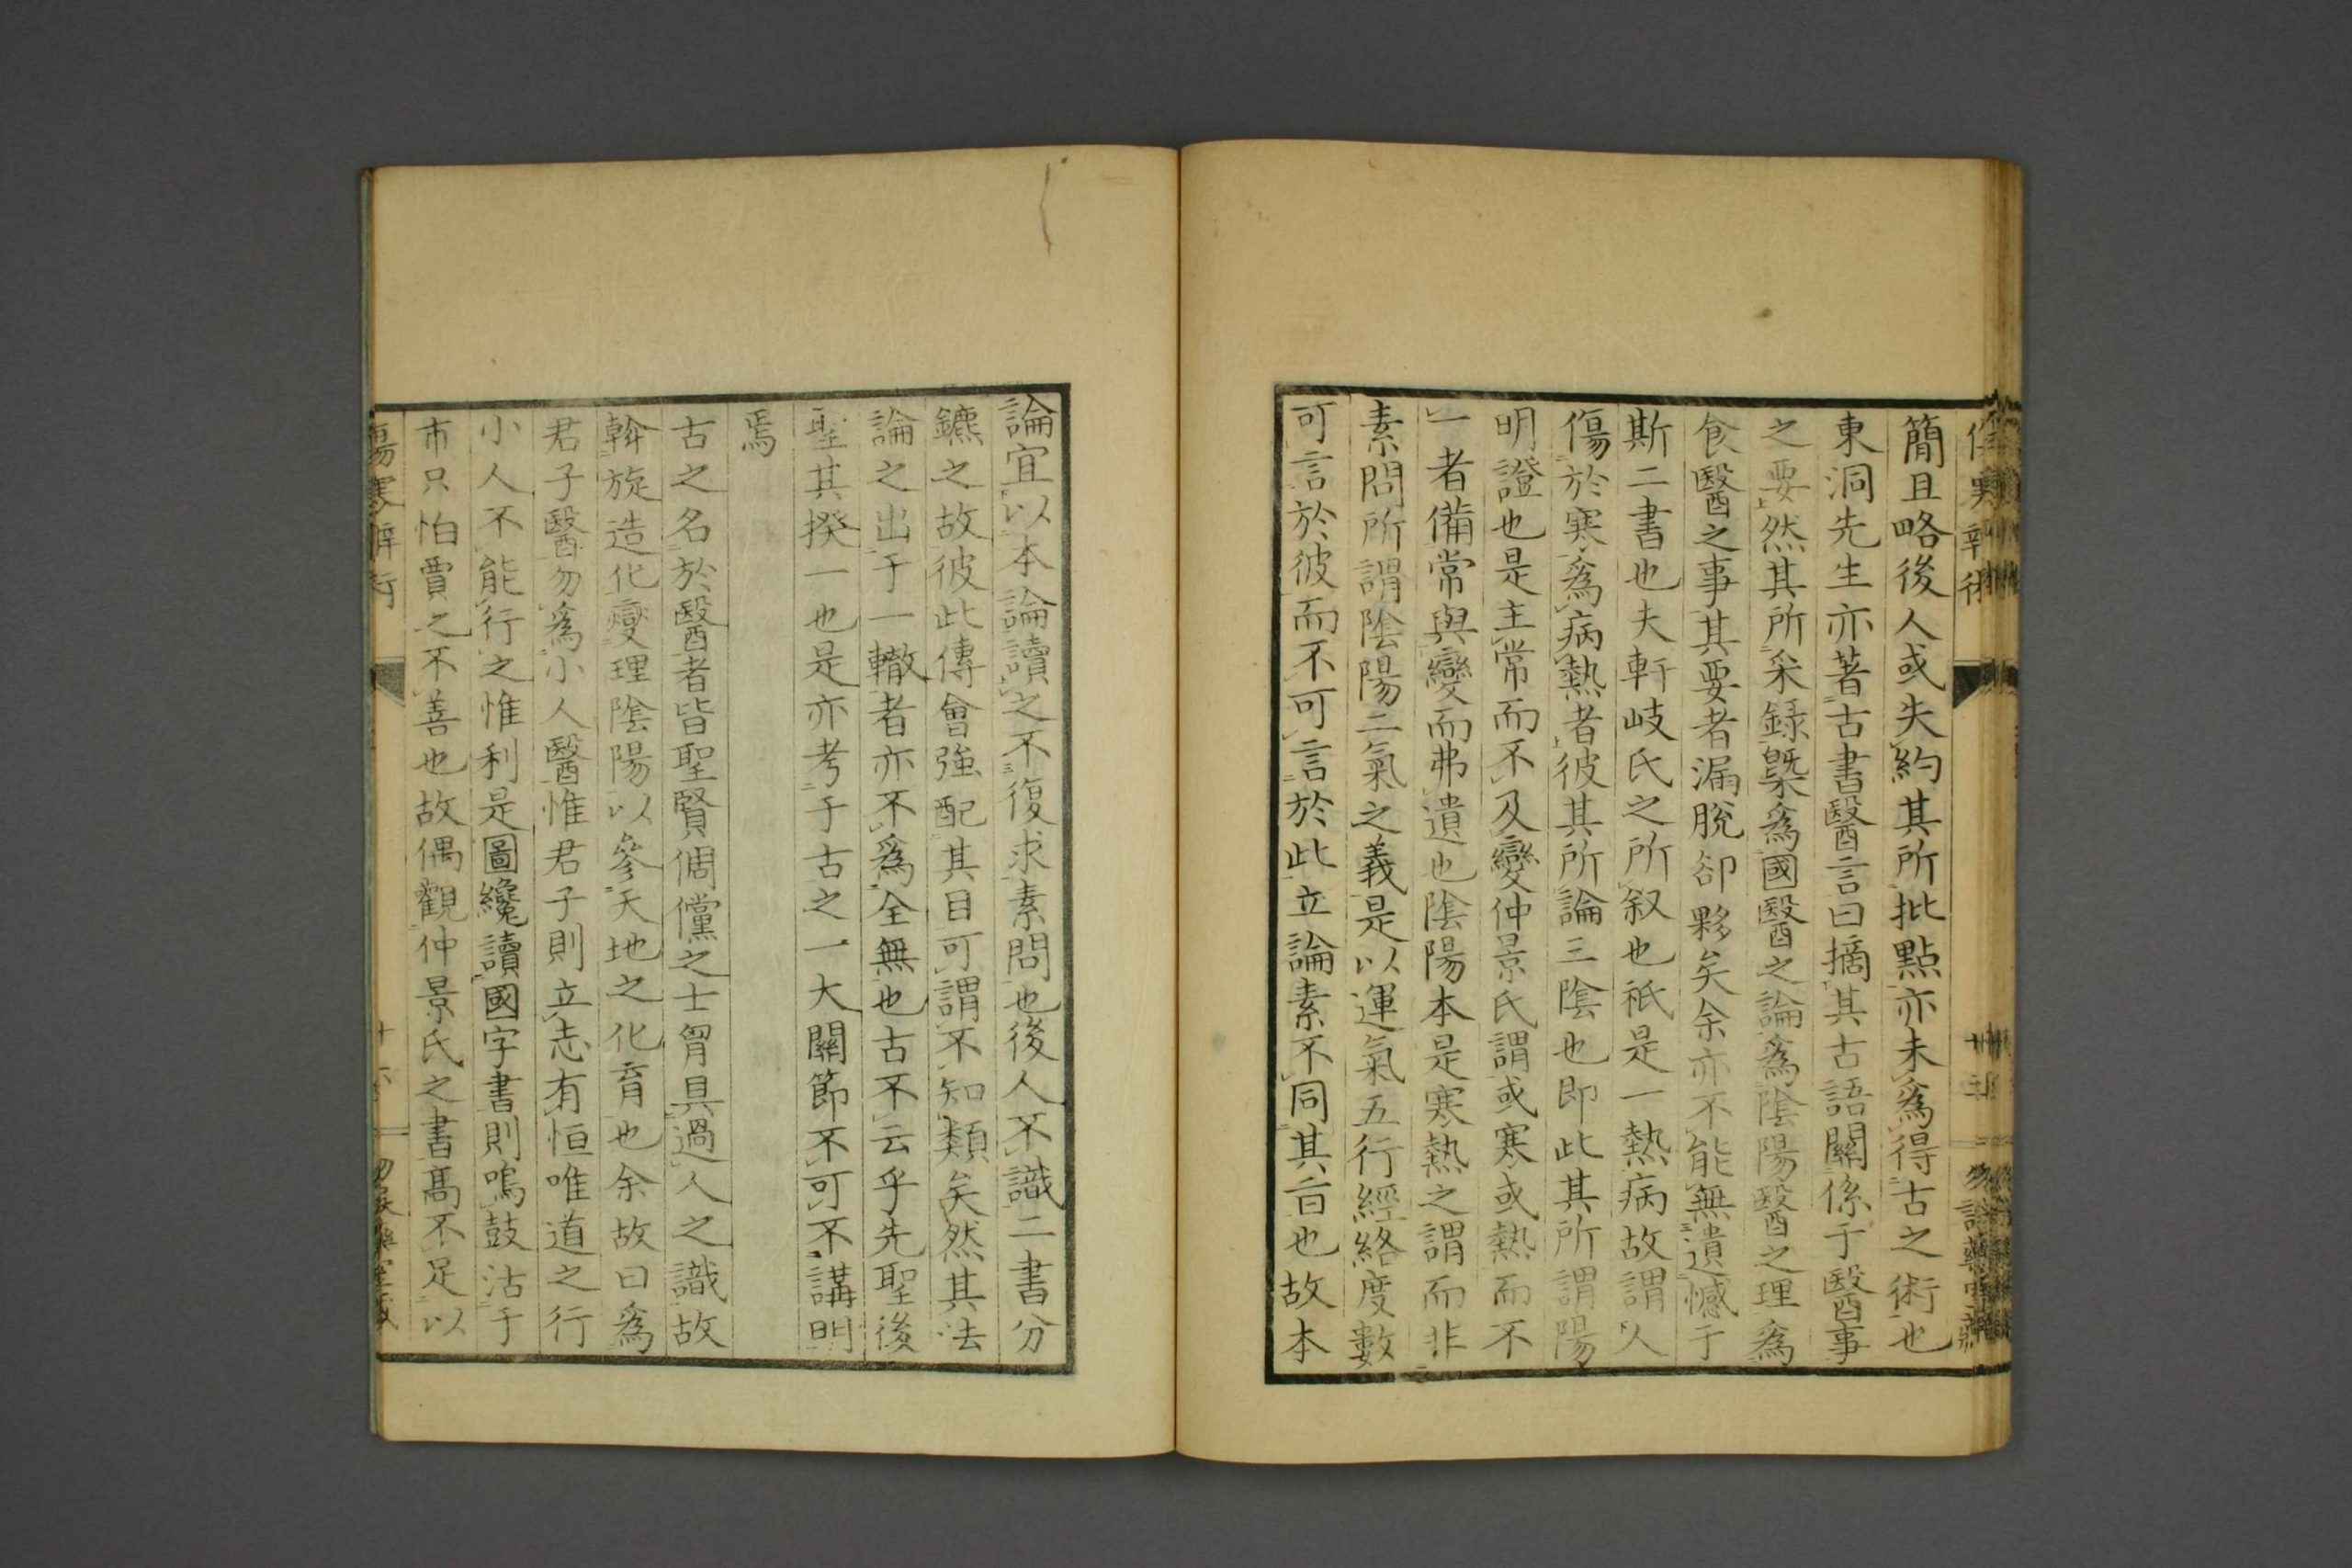 簡且略後人或失約其所批點亦未爲得古之術也
東洞先生亦著古書醫言曰摘其古語關係于醫事
之要然其所采錄槩爲國醫之論爲陰陽醫之理爲
食醫之事其要者漏脫卻夥矣余亦不能無遺憾于
斯二書也夫軒岐氏之所叙也祇是一熱病故謂人
傷於寒爲病熱者彼其所論三陰也即此其所謂陽
明證也是主常而不及變仲景氏謂或寒或熱而不
一者備常與變而弗遺也陰陽本是寒熱之謂而非
素問所謂陰陽二氣之義是以運氣五行經絡度數
可言於彼而不可言於此立論素不同其旨也故本
論宜以本論讀之不復求素問也後人不識二書分
鑣之故彼此傳會強配其目可謂不知類矣然其法
論之出于一轍者亦不爲全無也古不云乎先聖後
聖其揆一也是亦考于古之一大關節不可不講明
焉
古之名於醫者皆聖賢倜儻之士胷具過人之識故
斡旋造化燮理陰陽以參天地之化育也余故曰爲
君子醫勿爲小人醫惟君子則立志有恒唯道之行
小人不能行之惟利是圖纔讀國字書則嗚鼓沽于
市只怕賣之不善也故偶觀仲景氏之書髙不足以
傷寒